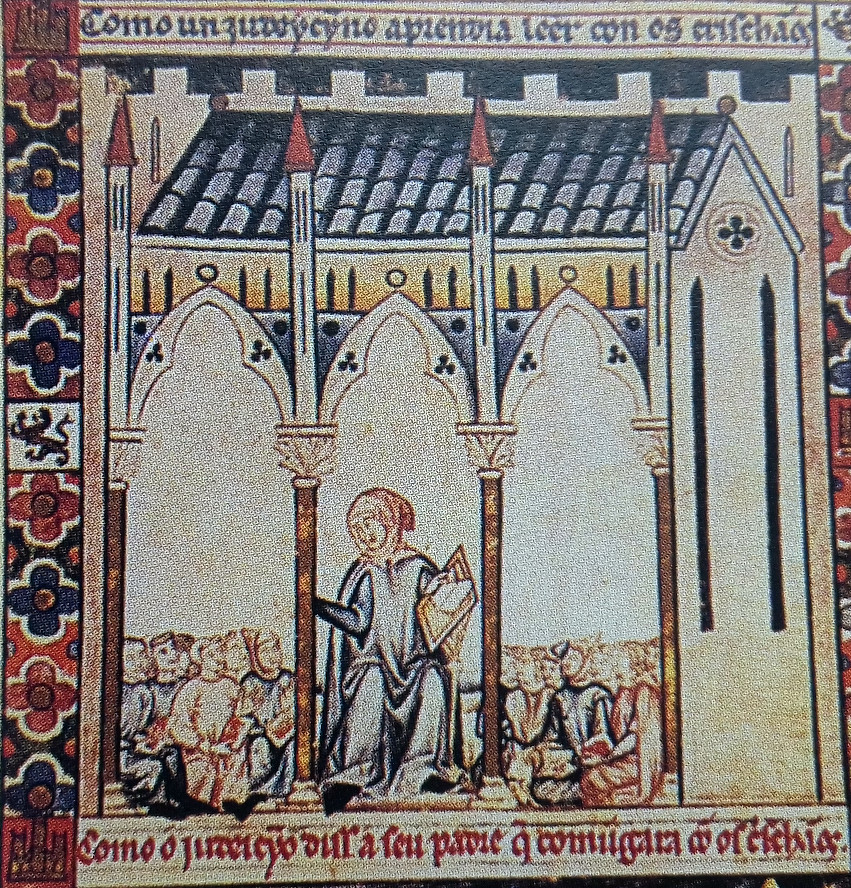 Como un judeucỹno aprendia leer con os crischãos
Como o judeucỹo diss' a seu padre q̃ comũgara cõ os c̃schãos.